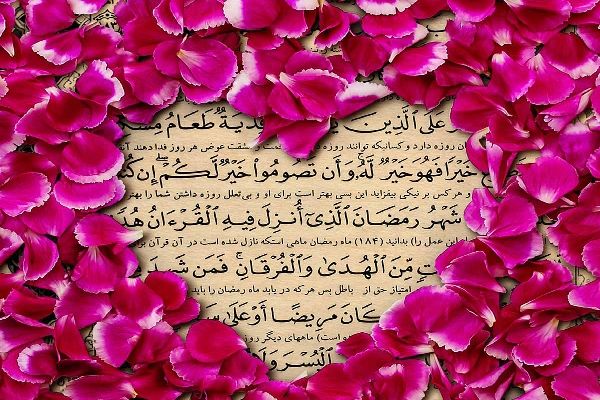 عَلَى ٱلَّذِينَ يُ فِدْيَةٌ طَعَامُ مِسْ
ان روزه دارد و کسانیکه توانند روزه و مشقت عوض هر روز فدا دهند آ
خَيْرًا فَهُوَ خَيْرٌ لَّهُۥ وَأَن تَصُومُوا۟ خَيْرٌ لَّكُمْ إِن كُنْ
و هر کس بر نیکی بیفزاید این بسی بهتر است برای او و بی‌تعلل روزه داشتن شما را بهتر
شَهْرُ رَمَضَانَ ٱلَّذِىٓ أُنزِلَ فِيهِ ٱلْقُرْءَانُ هُدً
این عمل را) بدانید (۱۸۴) ماه رمضان ماهی استکه نازل شده است در آن قرآن برا
تٍ مِّنَ ٱلْهُدَىٰ وَٱلْفُرْقَانِ فَمَن شَهِدَ
امتیاز حق از باطل پس هر که در یابد ماه رمضان را باید
كَانَ مَرِيضًا أَوْ عَلَىٰ سَ
ه است) ماههای دیگر روز
ٱلْيُسْرَ وَلَا